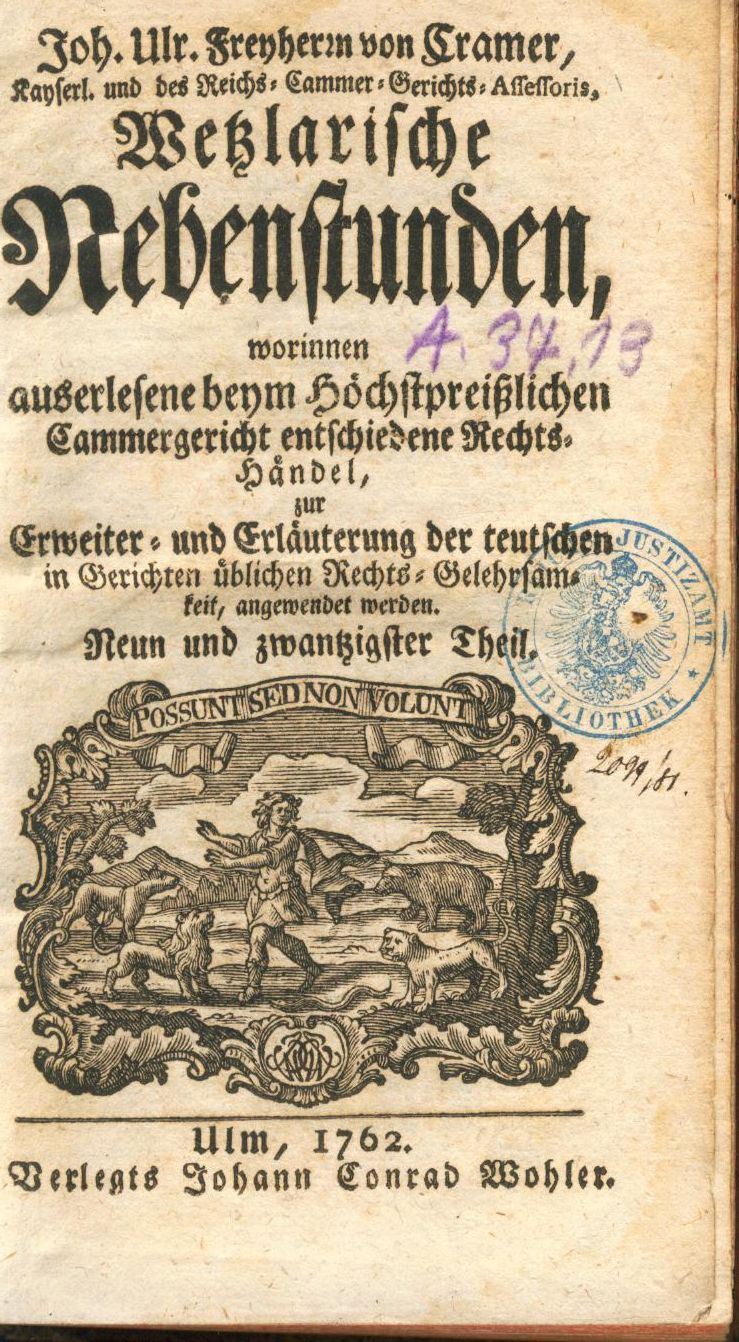 Joh. Ulr. Freyherrn von Cramer,
Kayserl. und des Reichs-Cammer-Gerichts-Assessoris,
Wetzlarische
Nebenstunden,
A. 34, 13
worinnen
auserlesene beym Höchstpreißlichen
Cammergericht entschiedene Rechts-
Händel,
zur
Erweiter- und Erläuterung der teutschen
in Gerichten üblichen Rechts-Gelehrsam-
keit, angewendet werden.
Neun und zwantzigster Theil.
JUSTIZAMT
BIBLIOTHEK
POSSUNT SED NON VOLUNT
Ulm, 1762.
Verlegts Johann Conrad Wohler.